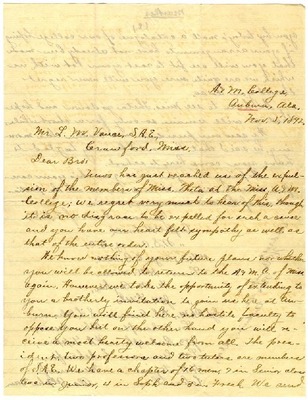 A & M. College,
Auburn, Ala.
Nov. 5, 1892
Mr. L. M. Vance, S.A.E.,
Crawford, Miss.
Dear Bro:
News has just reached us of the expul-
sion of the members of Miss. Theta at the Miss. A & M.
College; we regret very much to hear of this though
it is no disgrace to be expelled for such a cause
and you have our heart felt sympathy as well as
that of the entire order.
We know nothing of your future plans nor whether
you will be allowed to return to the A & M. C. of Miss
again. However we take the opportunity of extending to
you a brotherly invitation to join us here at Au-
burn. You will find here no hostile faculty to
oppose you but on the other hand you will re-
ceive a most hearty welcome from all. The pres-
ident, two professors and two tutors are members
of S.A.E. We have a chapter of 26 men, 7 in Senior class
in Junior, in Soph and in Fresh. We send